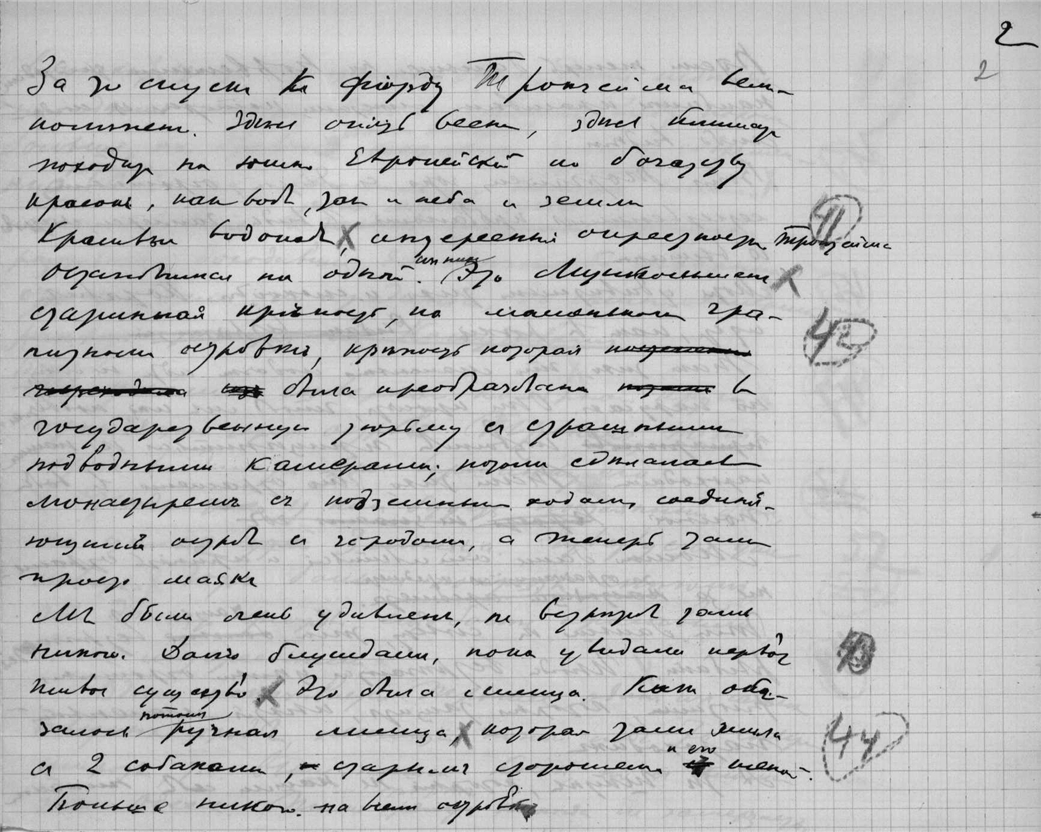 2
2
За то спуск к фiорду Тронгейма вели-
колепен. Здесь опять весна, здесь климат
походит на южно Европейскiй по богатству
красокъ, как воды, так и неба и земли
41
Красивы водопады, интересны окрестности Тронгейма
Остановимся на одной. Это Мункгольмен
старинная крѣпость, на маленьком гра-
42
нитном островкѣ, крѣпость которая
была преобразована в
государственную тюрьму с страшными
подводными камерами; потом сдѣлалась
монастыремъ съ подземным ходом, соединя-
ющимъ островъ с городом, а теперь там
просто маякъ
Мы были очень удивлены, не встрѣтивъ там
никого. Долго блуждали, пока увидали первое
43
живое существо. Это была лисица. Как ока-
залось потом ручная лисица, которая там жила
44
с 2 собаками, старымъ сторожем и его женой.
Больше никого на всем островѣ